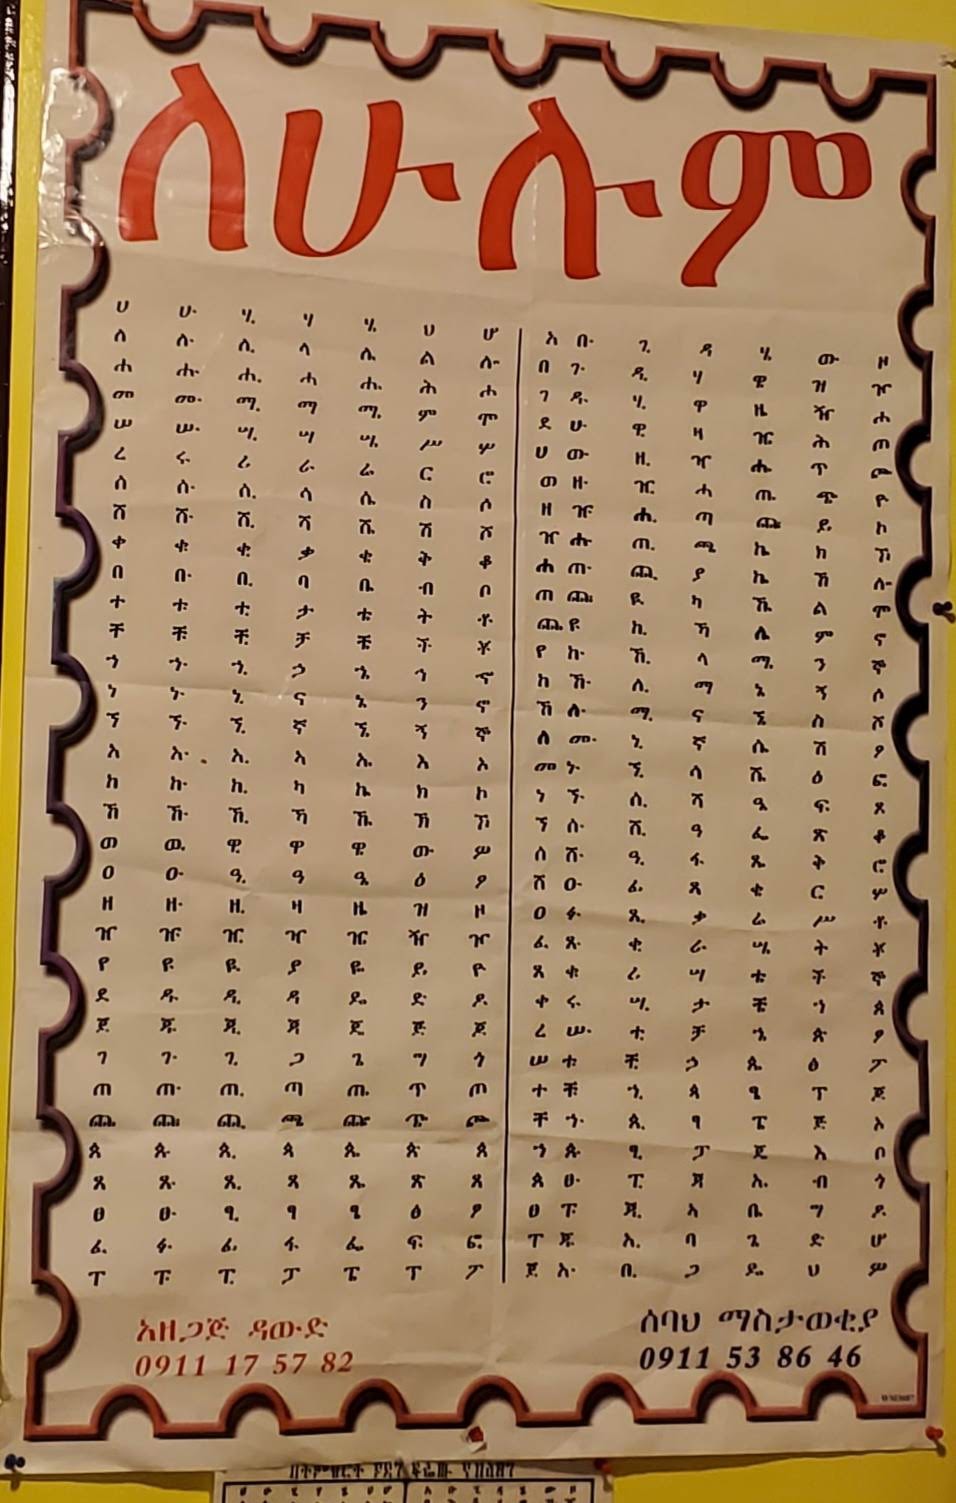 ለሁሉም
ሀ ሁ ሂ ሃ ሄ ህ ሆ
ለ ሉ ሊ ላ ሌ ል ሎ
ሐ ሑ ሒ ሓ ሔ ሕ ሖ
መ ሙ ሚ ማ ሜ ም ሞ
ሠ ሡ ሢ ሣ ሤ ሥ ሦ
ረ ሩ ሪ ራ ሬ ር ሮ
ሰ ሱ ሲ ሳ ሴ ስ ሶ
ሸ ሹ ሺ ሻ ሼ ሽ ሾ
ቀ ቁ ቂ ቃ ቄ ቅ ቆ
በ ቡ ቢ ባ ቤ ብ ቦ
ተ ቱ ቲ ታ ቴ ት ቶ
ቸ ቹ ቺ ቻ ቼ ች ቾ
ኀ ኁ ኂ ኃ ኄ ኅ ኆ
ነ ኑ ኒ ና ኔ ን ኖ
ኘ ኙ ኚ ኛ ኜ ኝ ኞ
አ ኡ ኢ ኣ ኤ እ ኦ
ከ ኩ ኪ ካ ኬ ክ ኮ
ኸ ኹ ኺ ኻ ኼ ኽ ኾ
ወ ዉ ዊ ዋ ዌ ው ዎ
ዐ ዑ ዒ ዓ ዔ ዕ ዖ
ዘ ዙ ዚ ዛ ዜ ዝ ዞ
ዠ ዡ ዢ ዣ ዤ ዥ ዦ
የ ዩ ዪ ያ ዬ ይ ዮ
ደ ዱ ዲ ዳ ዴ ድ ዶ
ጀ ጁ ጂ ጃ ጄ ጅ ጆ
ገ ጉ ጊ ጋ ጌ ግ ጎ
ጠ ጡ ጢ ጣ ጤ ጥ ጦ
ጨ ጩ ጪ ጫ ጬ ጭ ጮ
ጰ ጱ ጲ ጳ ጴ ጵ ጶ
ጸ ጹ ጺ ጻ ጼ ጽ ጾ
ፀ ፁ ፂ ፃ ፄ ፅ ፆ
ፈ ፉ ፊ ፋ ፌ ፍ ፎ
ፐ ፑ ፒ ፓ ፔ ፕ ፖ
አ ቡ ጊ ዳ ሄ ው ዞ
በ ጉ ዲ ሃ ዌ ዝ ዦ
ገ ዱ ሂ ዋ ዜ ዥ ሖ
ደ ሁ ዊ ዛ ዤ ሕ ጦ
ሀ ዉ ዚ ዣ ሔ ጥ ጮ
ወ ዙ ዢ ሓ ጤ ጭ ዮ
ዘ ዡ ሒ ጣ ጬ ይ ኮ
ዠ ሑ ጢ ጫ ኬ ክ ኾ
ሐ ጡ ጪ ያ ኬ ኽ ሎ
ጠ ጩ ዪ ካ ኼ ል ሞ
ጨ ዩ ኪ ኻ ሌ ም ኖ
የ ኩ ኺ ላ ሜ ን ኞ
ከ ኹ ሊ ማ ኔ ኝ ሶ
ኸ ሉ ሚ ና ኜ ስ ሾ
ለ ሙ ኒ ኛ ሴ ሽ ዖ
መ ኑ ኚ ሳ ሼ ዕ ፎ
ነ ኙ ሲ ሻ ዔ ፍ ጾ
ኘ ሱ ሺ ዓ ፌ ጽ ቆ
ሰ ሹ ዒ ፋ ጼ ቅ ሮ
ሸ ዑ ፊ ጻ ቄ ር ሦ
ዐ ፉ ጺ ቃ ሬ ሥ ቶ
ፈ ጹ ቂ ራ ሤ ት ቾ
ጸ ቁ ሪ ሣ ቴ ች ኆ
ቀ ሩ ሢ ታ ቼ ኅ ጶ
ረ ሡ ቲ ቻ ኄ ጵ ፆ
ሠ ቱ ቺ ኃ ጴ ፅ ፖ
ተ ቹ ኂ ጳ ፄ ፕ ጆ
ቸ ኁ ጲ ፃ ፔ ጅ ኦ
ኀ ጱ ፂ ፓ ጄ እ ቦ
ጰ ፁ ፒ ጃ ኤ ብ ጎ
ፀ ፑ ጂ ኣ ቤ ግ ዶ
ፐ ጁ ኢ ባ ጌ ድ ሆ
ጀ ኡ ቢ ጋ ዴ ህ ዎ
አዘጋጅ ዳውድ
0911 17 57 82
ሰባህ ማስታወቂያ
0911 53 86 46